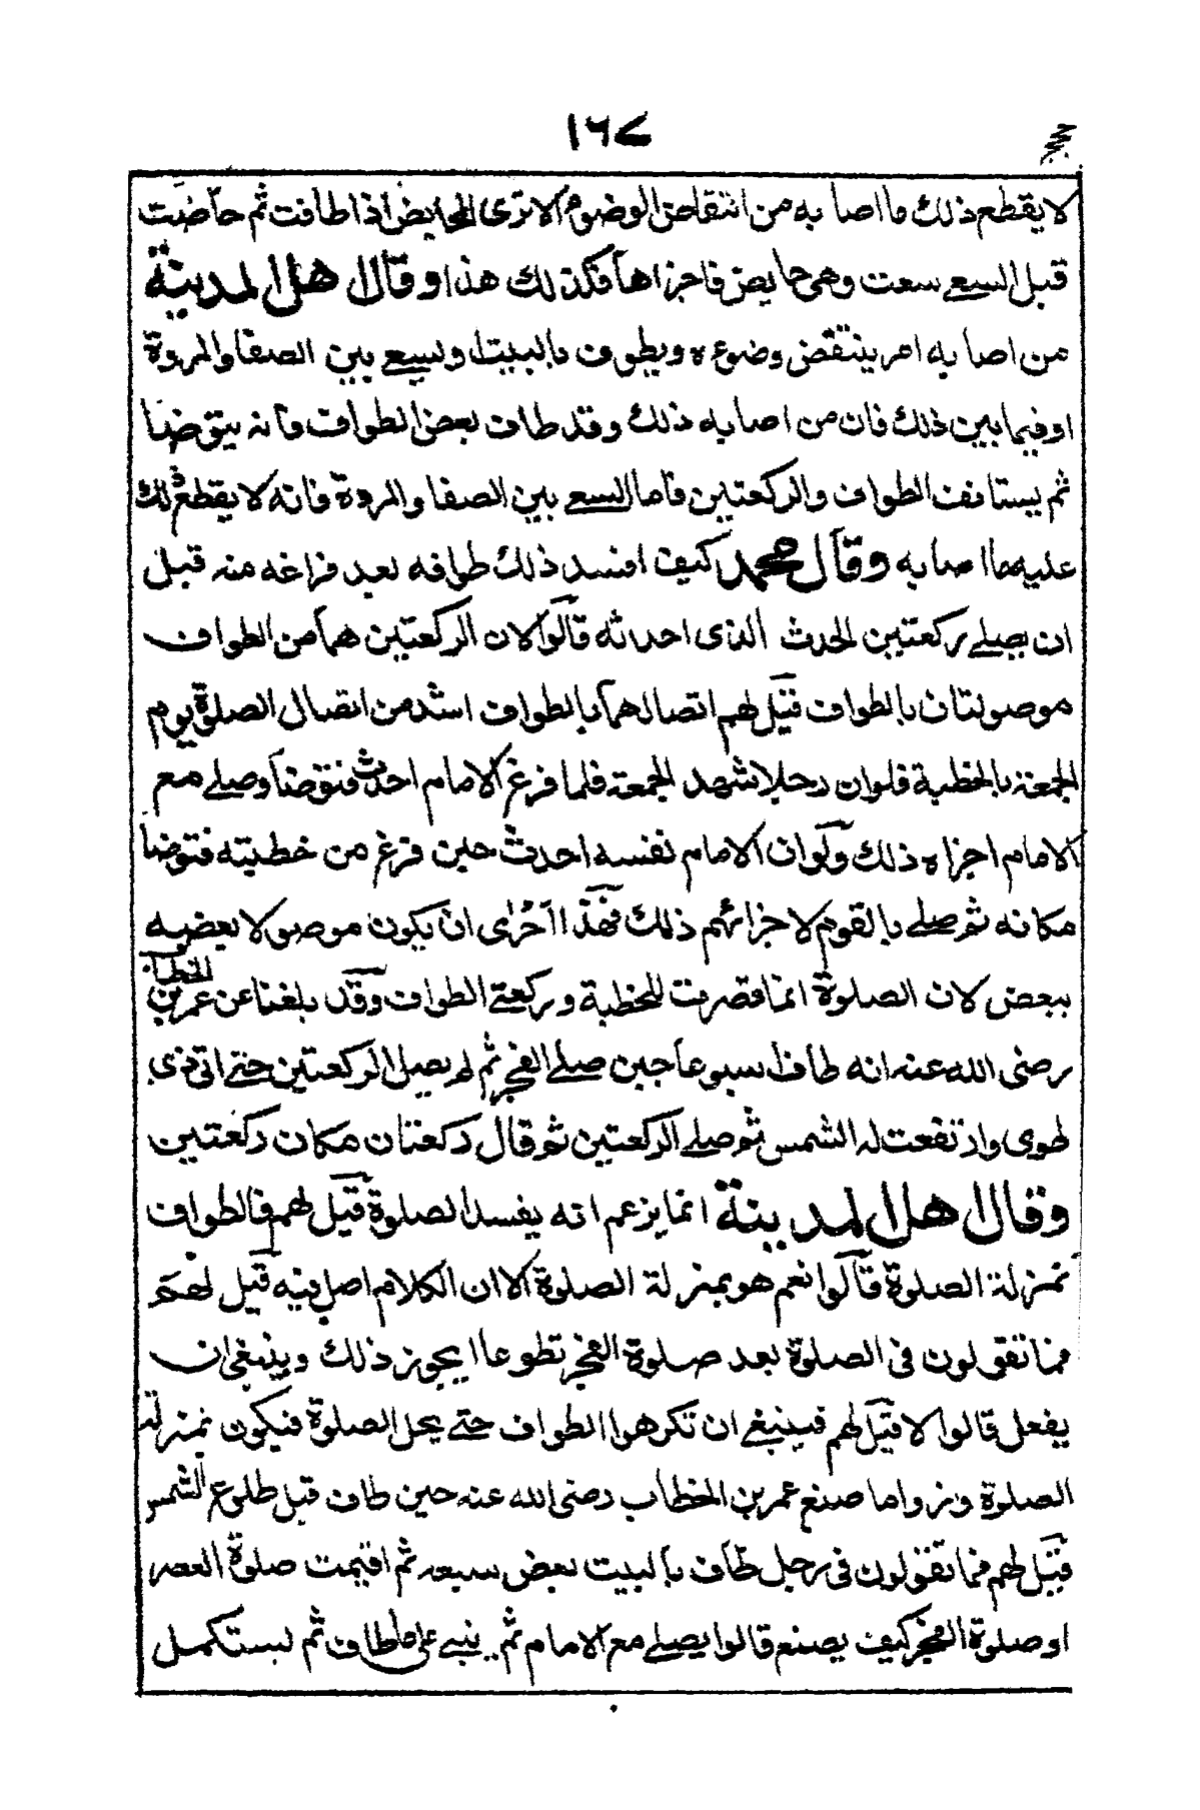 ١٦٧
لا يقطع ذلك ما اصابه من انتقاض الوضوء الا ترى الحايض اذا طافت ثم حاضت
قبل السعي سعت وهى حايض فاجزاها فكذلك هذا وقال اهل المدينة
من اصابه امر ينتقض وضوءه ويطوف بالبيت او يسعے بين الصفا والمروة
او فيما بين ذلك فان من اصابه ذلك وقد طاف بعض الطواف فانه يتوضا
ثم يستانف الطواف والركعتين فاما السعے بين الصفا والمروة فانه لا يقطع ذلك
عليه ما اصابه وقال محمد كيف افسد ذلك طوافه بعد فراغه منه قبل
ان يصلے ركعتين الحدث الذى احدثه قالوا لان الركعتين هما من الطواف
موصولتان بالطواف قيل لهم اتصالهما بالطواف اشد من اتصال الصلوة يوم
الجمعة بالخطبة فلوان رجلا شهد الجمعة فلما فرغ الامام احدث فتوضا وصلے مع
الامام اجزاه ذلك ولوان الامام نفسه احدث حين فرغ من خطبته فتوضا
مكانه ثم صلے بالقوم لاجزائهم ذلك فهذا احرى ان يكون موصولا بعضه
ببعض لان الصلوة انما قصرت للخطبة وركعتے الطواف وقد بلغنا عن عمر بن الخطاب
رضى الله عنه انه طاف سبوعا حين صلے الفجر ثم لم يصل الركعتين حتے اتى ذى
طوى وارتفعت له الشمس ثم صلے الركعتين ثم قال ركعتان مكان ركعتين
وقال اهل المدينة انما يزعم انه يفسد الصلوة قيل لهم فالطواف
بمنزلة الصلوة قالوا نعم هو بمنزلة الصلوة الا ان الكلام اصل فيه قيل لهم
فما تقولون فى الصلوة بعد صلوة الفجر تطوعا ايجوز ذلك وينبغى ان
يفعل قالوا لا قيل لهم فينبغے ان تكرهوا الطواف حتے يحل الصلوة فيكون بمنزلة
الصلوة ونروا ما صنع عمر بن الخطاب رضى الله عنه حين طاف قبل طلوع الشمس
قيل لهم فما تقولون فى رجل طاف بالبيت بعض سبعه ثم اقيمت صلوة العصر
او صلوة الفجر كيف يصنع قالوا يصلے مع الامام ثم يبنے على ما طاف ثم ليستكمل